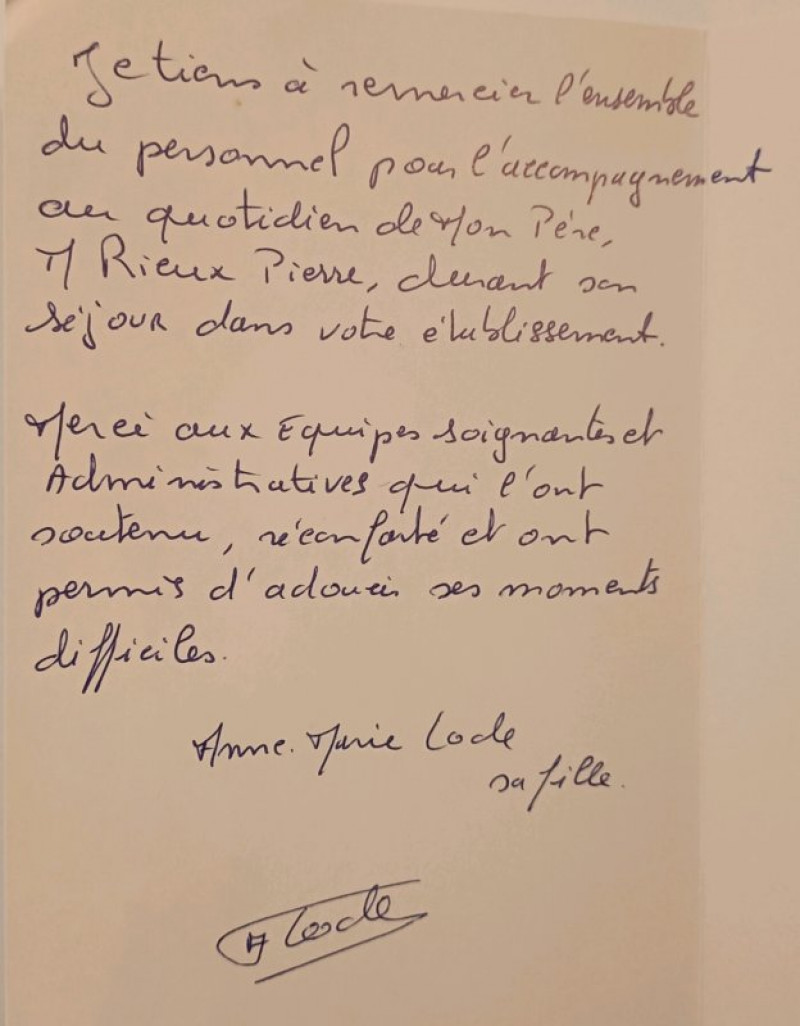 Je tiens à remercier l'ensemble
du personnel pour l'accompagnement
au quotidien de Mon Père,
M Rieux Pierre, durant son
séjour dans votre établissement.
Merci aux Equipes soignantes et
Administratives qui l'ont
soutenu, réconforté et ont
permis d'adoucir ses moments
difficiles.
Anne-Marie Lode
sa fille.
A Lode